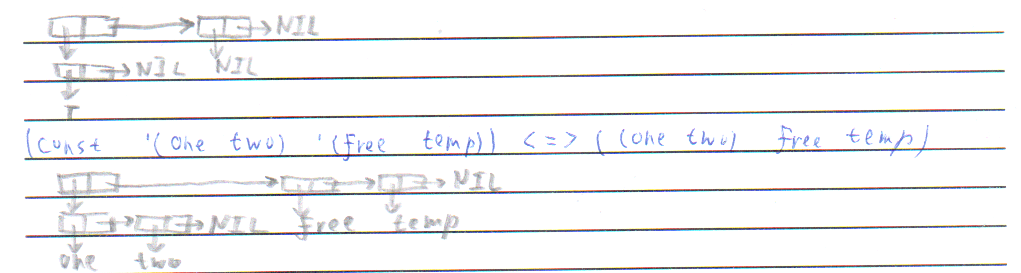 NIL
NIL NIL
T
(const '(one two) '(free temp)) <=> ((one two) free temp)
NIL
NIL free temp
one two